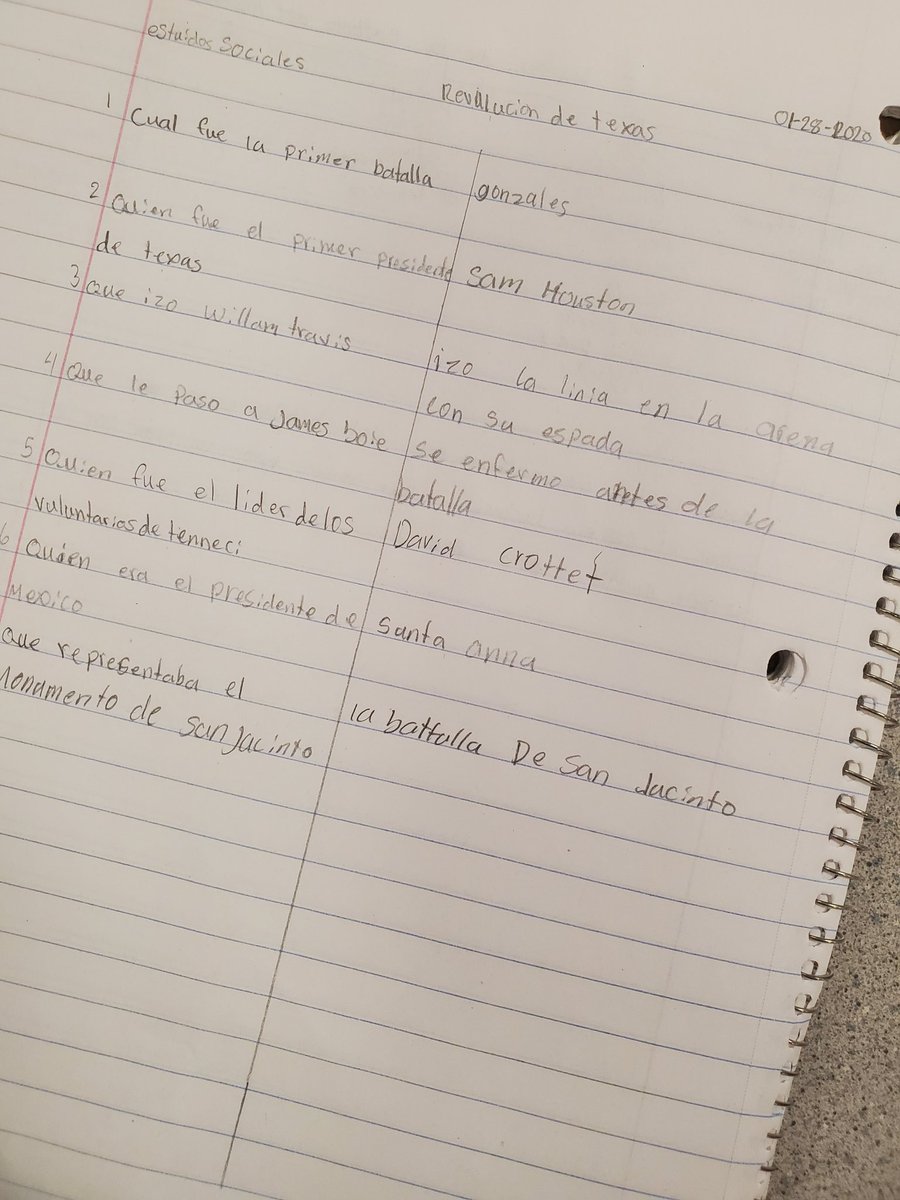 estuidos sociales
Revulucion de texas
01-28-2020
1 Cual fue la primer batalla
gonzales
2 Quien fue el primer presidente
de texas
Sam Houston
3 que izo willam travis
izo la linia en la arena
con su espada
4 Que le paso a James boie
se enfermo antes de la
batalla
5 Quien fue el lider delos
voluntarios de tenneci
David crottet
6 Quien era el presidente de
Mexico
Santa anna
que representaba el
Monamento de san Jacinto
la battalla De San Jacinto